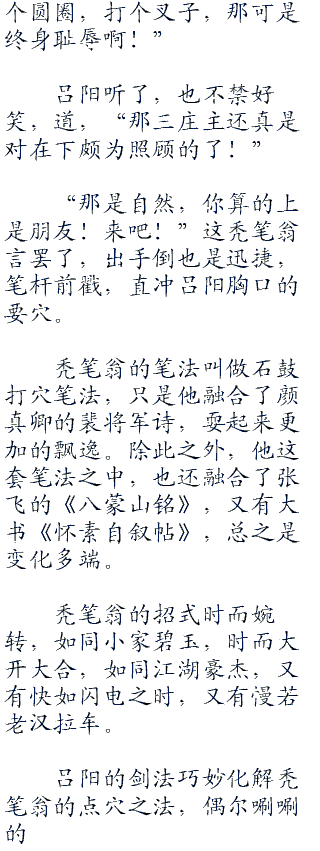 个圆圈，打个叉子，那可是
终身耻辱啊！”
吕阳听了，也不禁好
笑，道，“那三庄主还真是
对在下颇为照顾的了！”
“那是自然，你算的上
是朋友！来吧！”这秃笔翁
言罢了，出手倒也是迅捷，
笔杆前戳，直冲吕阳胸口的
要穴。
秃笔翁的笔法叫做石鼓
打穴笔法，只是他融合了颜
真卿的裴将军诗，耍起来更
加的飘逸。除此之外，他这
套笔法之中，也还融合了张
飞的《八蒙山铭》，又有大
书《怀素自叙帖》，总之是
变化多端。
秃笔翁的招式时而婉
转，如同小家碧玉，时而大
开大合，如同江湖豪杰，又
有快如闪电之时，又有漫若
老汉拉车。
吕阳的剑法巧妙化解秃
笔翁的点穴之法，偶尔唰唰
的